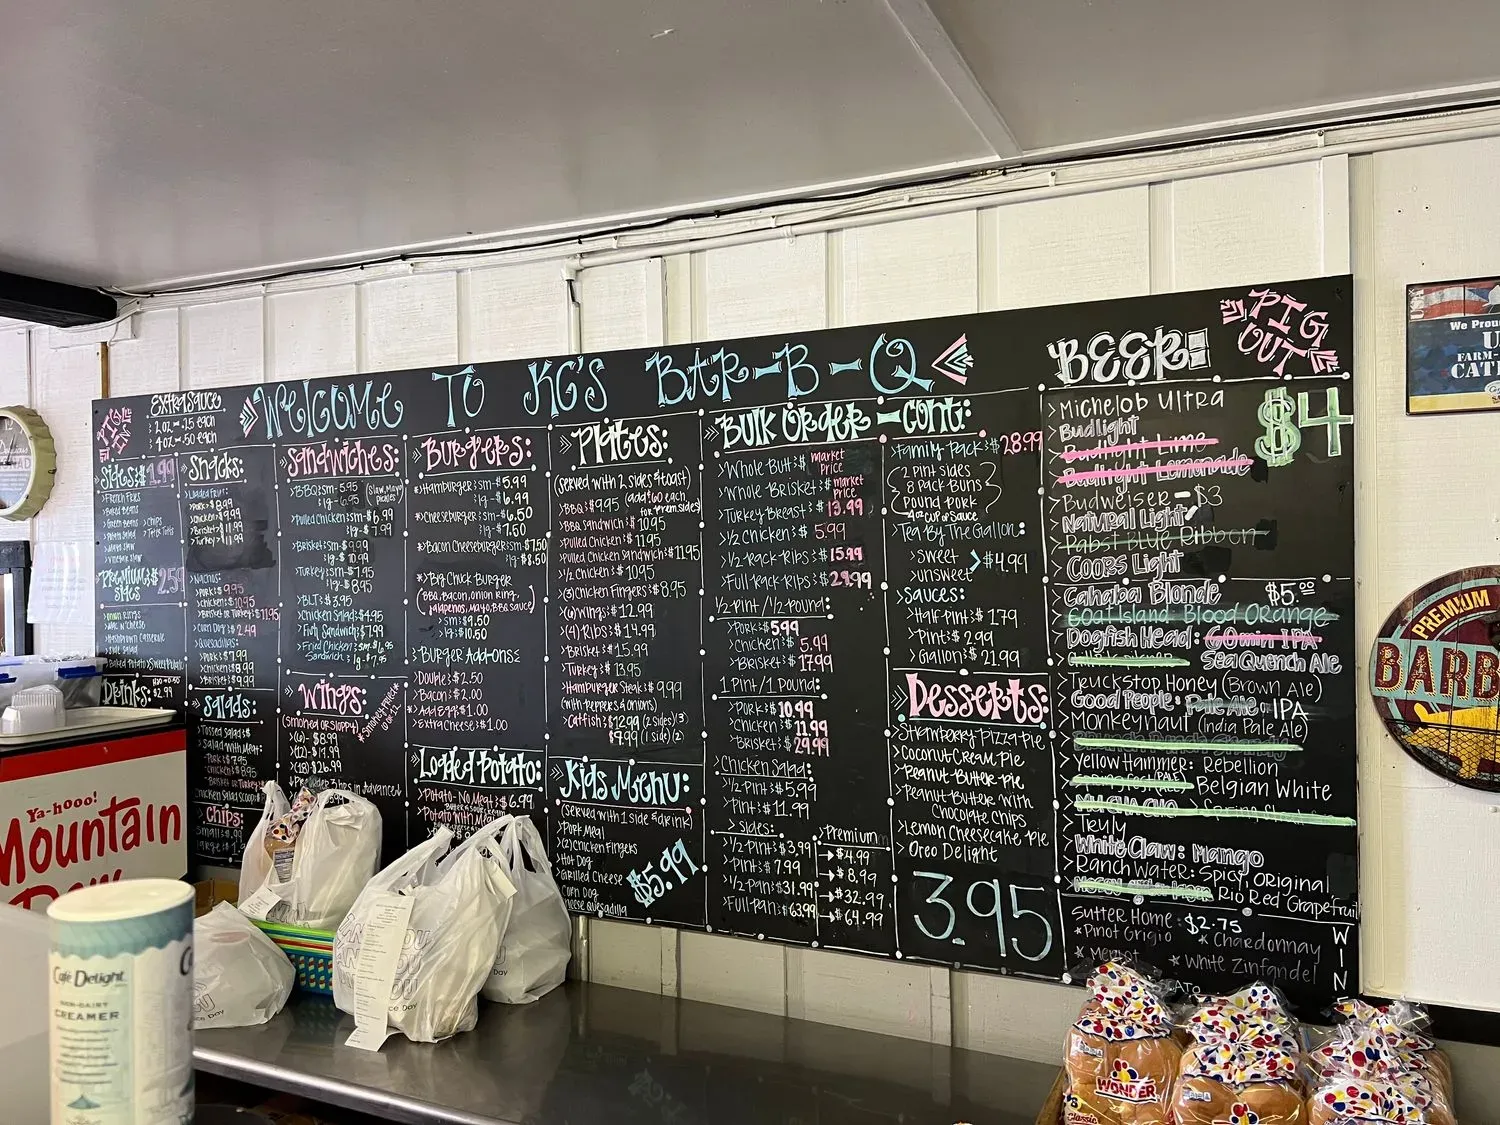 WELCOME TO KG'S BAR-B-Q
PIG OUT
EXTRA SAUCE
2 OZ - .25 each
4 OZ - .50 each
Sides: $1.99
>French Fries
>Baked Beans
>Green Beans
>Chips
>Potato Salad
Premium: $2.59
Sides
>Mac n' Cheese
>Hashbrown Casserole
Drinks:
$2.99
Snacks:
Loaded Fries:
>Pork: $8.99
>Chicken: $9.99
>Brisket: $11.99
>Turkey: $11.99
Nachos:
>Pork: $9.95
>Chicken: $10.95
>Brisket or Turkey: $11.95
>Corn Dog: $2.49
Quesadillas:
>Pork: $7.99
>Chicken: $8.99
>Brisket: $9.99
Salads:
Tossed Salad:
Salad with Meat:
Pork: $7.95
Chicken: $8.95
Brisket or Turkey:
Chicken Salad Scoop:
Chips:
Small:
Large:
Sandwiches:
>BBQ: sm- 5.95
lg- 6.95
(Slaw, Mayo, Pickles)
>Pulled Chicken: sm- $6.99
lg- $7.99
>Brisket: sm- $9.99
lg- $10.99
>Turkey: sm- $7.95
lg- $8.95
>BLT: $3.95
>Chicken Salad: $4.95
>Fish Sandwich: $7.99
>Fried Chicken: sm $6.95
Sandwich: lg $7.95
Wings:
(Smoked or Sloppy)
>(6)- $8.99
>(12)- $14.99
>(18)- $26.99
Burgers:
*Hamburger: sm- $5.99
lg- $6.99
*Cheeseburger: sm- $6.50
lg- $7.50
*Bacon Cheeseburger: sm $7.50
lg $8.50
*Big Chuck Burger
(BBQ, Bacon, Onion Ring,
Jalapenos, Mayo, BBQ Sauce)
sm: $9.50
lg: $10.50
>Burger Add-ons:
>Double: $2.50
>Bacon: $2.00
>Add Egg: $1.00
>Extra Cheese: $1.00
Loaded Potato:
>Potato-No Meat: $6.99
>Potato with Meat
Plates:
(Served with 2 sides & toast)
>BBQ: $9.95 (add $.60 each
for prem. sides)
>BBQ Sandwich: $10.95
>Pulled Chicken: $11.95
>Pulled Chicken Sandwich: $11.95
>1/2 Chicken: $10.95
>(3) Chicken Fingers: $8.95
>(6) Wings: $12.99
>(4) Ribs: $14.99
>Brisket: $15.99
>Turkey: $13.95
>Hamburger Steak: $9.99
(with peppers & onions)
>Catfish: $12.99 (2 sides)(3)
$9.99 (1 side)(2)
Kids Menu:
(Served with 1 side & drink)
>Pork Meal
>(2) Chicken Fingers
>Hot Dog
>Grilled Cheese
Corn Dog
Cheese Quesadilla
$5.99
Bulk Order - Cont:
>Whole Butt: $ Market Price
>Whole Brisket: $ Market Price
>Turkey Breast: $ 13.99
>1/2 Chicken: $ 5.99
>1/2 Rack Ribs: $ 15.99
>Full Rack Ribs: $ 29.99
1/2 Pint/1/2 Pound:
>Pork: $5.99
>Chicken: $ 5.99
>Brisket: $ 17.99
1 Pint/1 Pound:
>Pork: $10.99
>Chicken: $ 11.99
>Brisket: $ 29.99
Chicken Salad:
>1/2 Pint: $5.99
>Pint: $11.99
>Sides:
>Premium
>1/2 Pint: $3.99 → $4.99
>Pint: $7.99 → $8.99
>1/2 Pan: $31.99 → $32.99
>Full Pan: $63.99 → $64.99
>Family Pack: $ 28.99
2 Pint Sides
8 Pack Buns
Pound Pork
4oz cup of Sauce
>Tea By The Gallon:
>Sweet
>Unsweet > $4.99
>Sauces:
>Half Pint: $ 1.79
>Pint: $ 2.99
>Gallon: $ 21.99
Desserts:
>Strawberry Pizza Pie
>Coconut Cream Pie
>Peanut Butter Pie
>Peanut Butter with
Chocolate Chips
>Lemon Cheesecake Pie
>Oreo Delight
3.95
BEER:
PIG OUT
$4
>Michelob Ultra
>Budlight
>Budlight Lime
>Budlight Lemonade
>Budweiser - $3
>Natural Light
>Pabst Blue Ribbon
>Coors Light
>Cahaba Blonde $5.00
>Goat Island Blood Orange
>Dogfish Head: 60 min IPA
Sea Quench Ale
>Truckstop Honey (Brown Ale)
>Good People: Pale Ale, IPA
>Monkeynaut (India Pale Ale)
>Yellow Hammer: Rebellion
Belgian White
>Truly
>White Claw: Mango
>Ranch Water: Spicy, Original
Rio Red Grapefruit
Sutter Home: $2.75
*Pinot Grigio
*Chardonnay
*Merlot
*White Zinfandel
WIN
Ya-hooo!
Mountain
Dew
Café Delight
NON-DAIRY
CREAMER
WONDER
Classic
PREMIUM
BARB
We Prou
FARM-
CAT